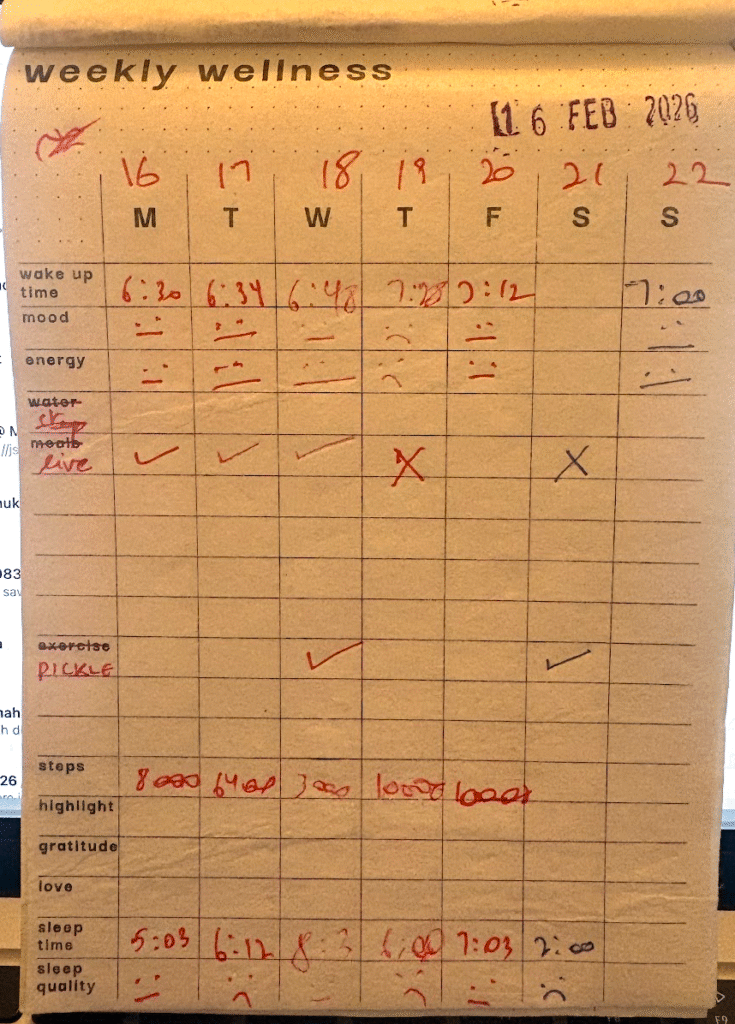 weekly wellness
16 FEB 2026
16 17 18 19 20 21 22
M T W T F S S
wake up time 6:30 6:34 6:48 7:28 7:12 7:00
mood
energy
water
step
meals
live
exercise
PICKLE
steps 8000 6400 3000 10000
highlight
gratitude
love
sleep time 5:03 6:12 6:00 7:03
sleep quality